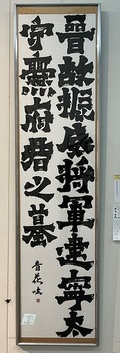 晉故振威將軍建寧太
守爨府君之墓